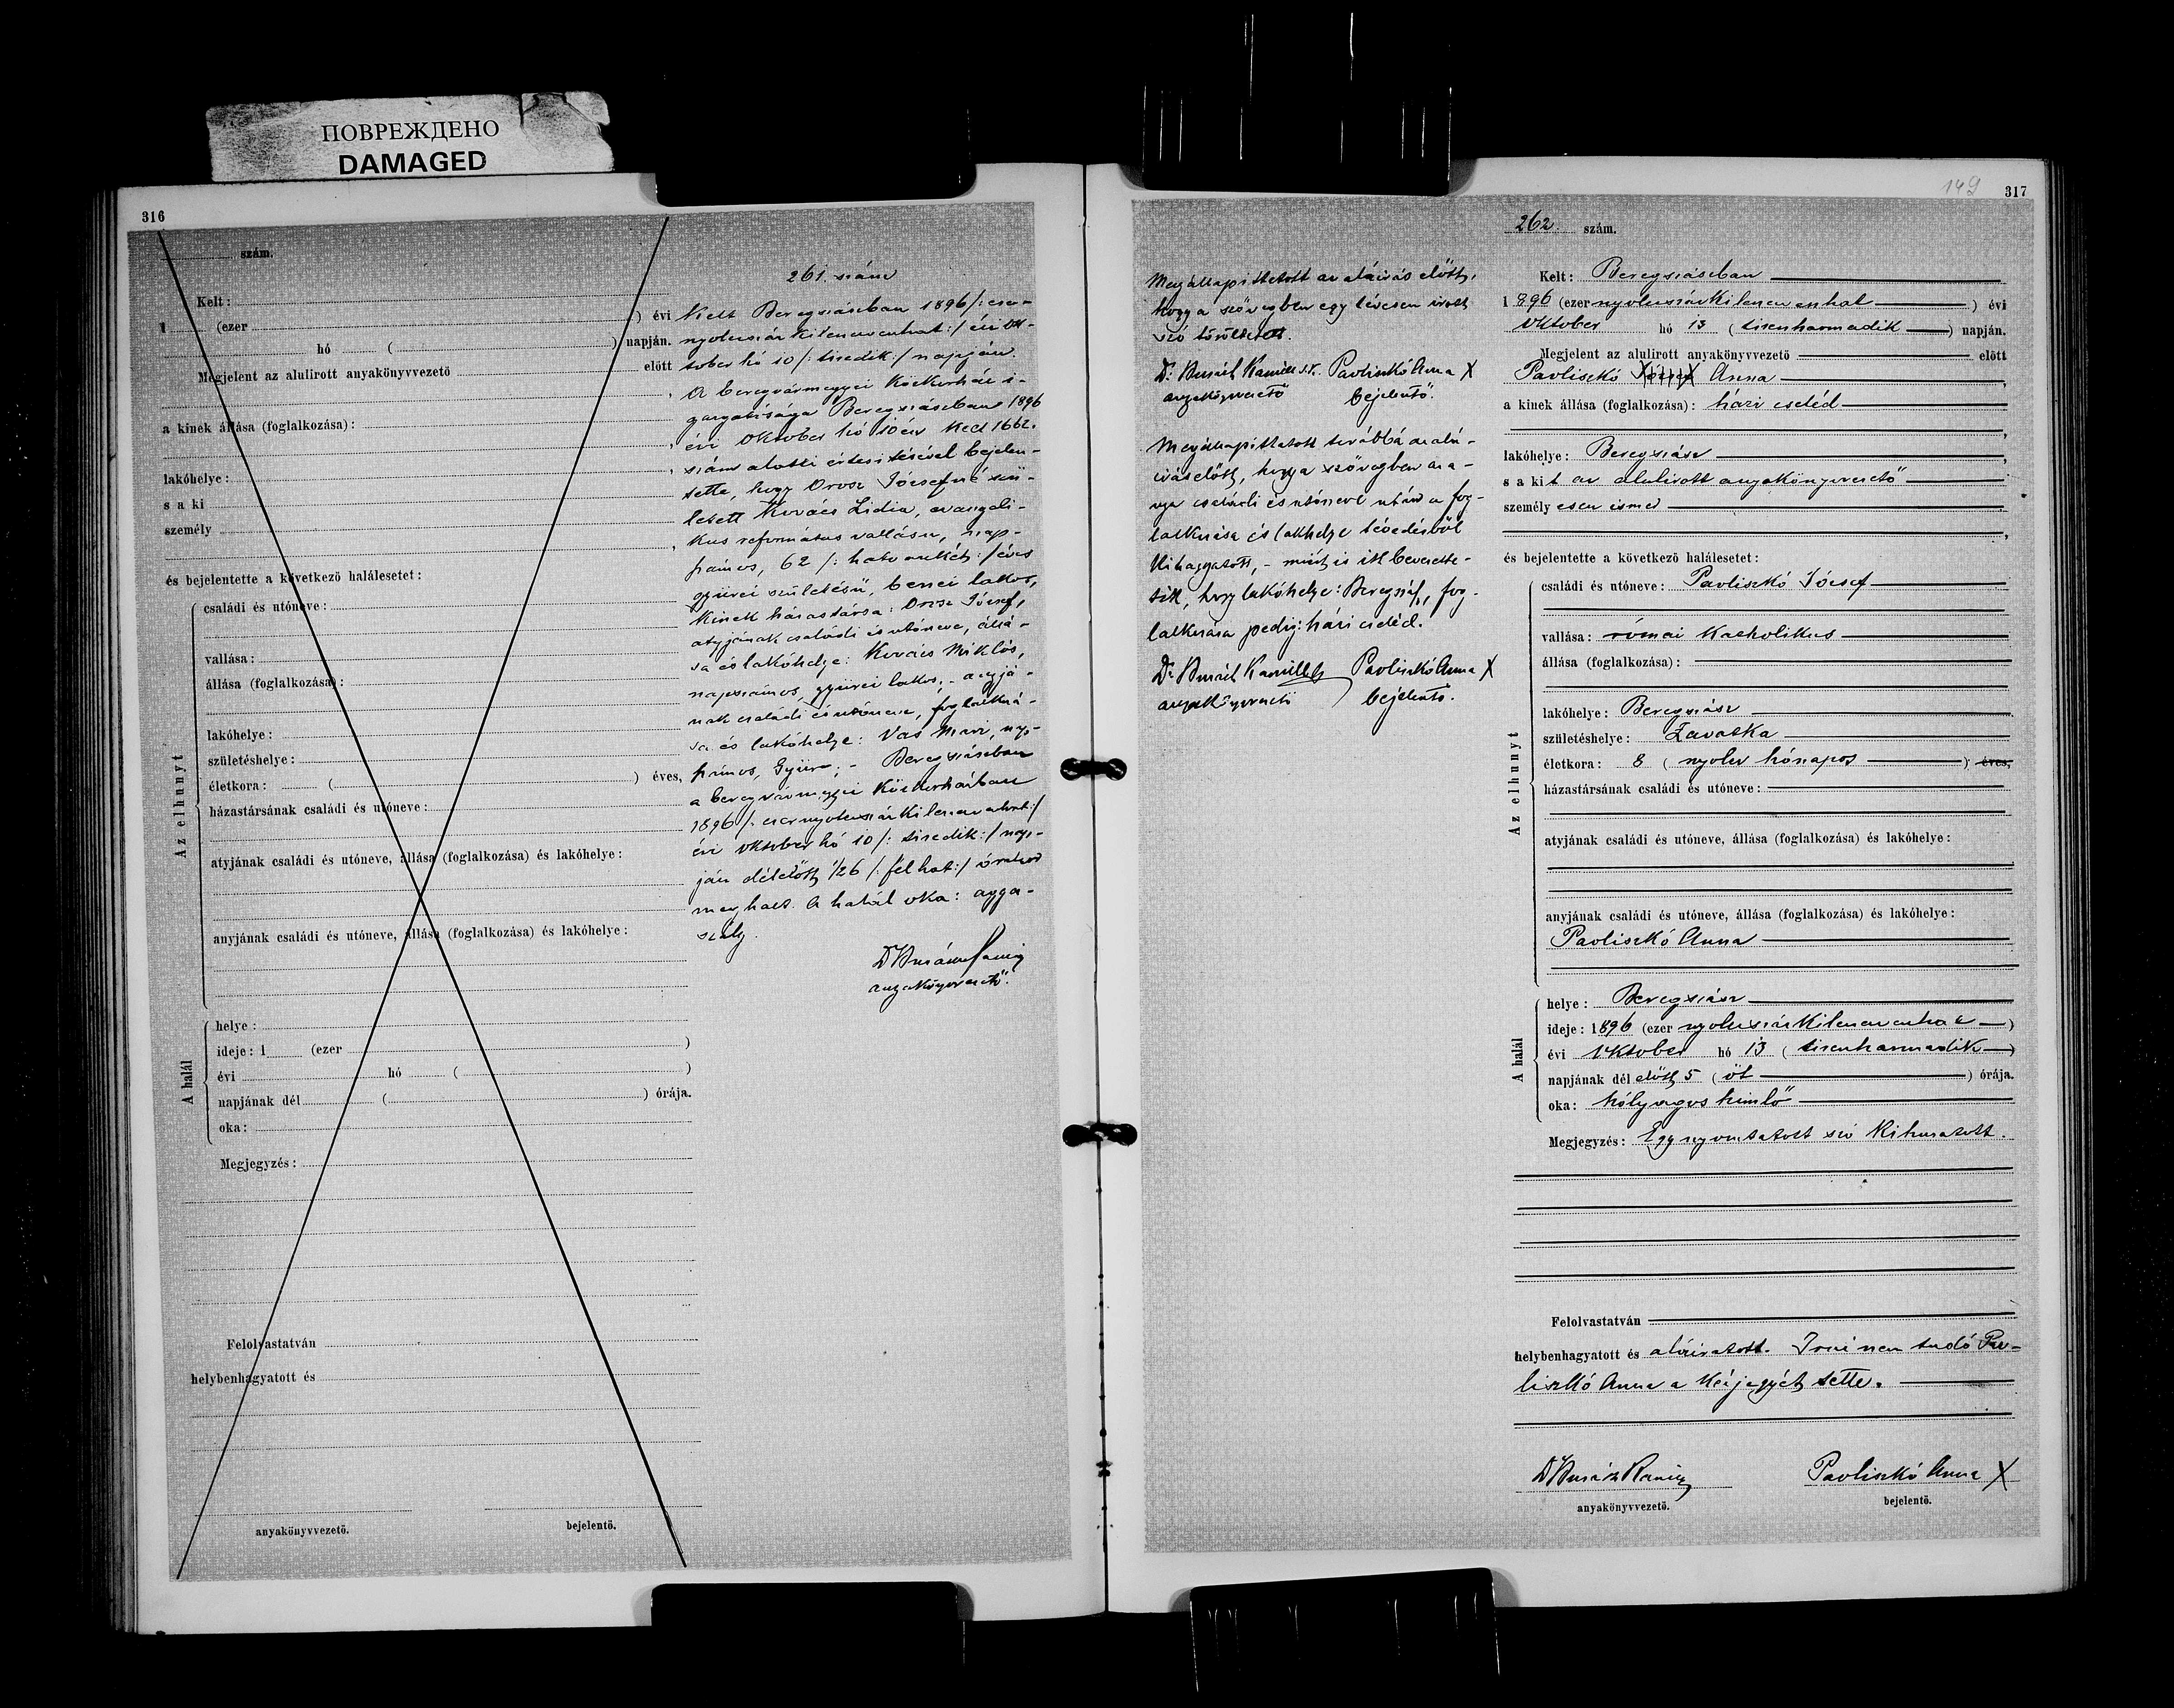 ПОВРЕЖДЕНО
DAMAGED
316
szám.
Kelt:
1 (ezer ) évi
hó ( ) napján.
Megjelent az alulirott anyakönyvvezető előtt
,
a kinek állása (foglalkozása):
,
lakóhelye: ,
s a ki
személy
,
és bejelentette a következő halálesetet:
Az elhunyt
családi és utóneve:
vallása:
állása (foglalkozása):
lakóhelye:
születéshelye:
életkora: ( ) éves,
házastársának családi és utóneve:
atyjának családi és utóneve, állása (foglalkozása) és lakóhelye:
anyjának családi és utóneve, állása (foglalkozása) és lakóhelye:
A halál
helye:
ideje: 1 (ezer )
évi hó ( )
napjának dél ( ) órája.
oka:
Megjegyzés:
Felolvastatván
helybenhagyatott és
anyakönyvvezető.
bejelentő.
261. szám
Kelt Beregszászban 1896 /: ezer-
nyolcszázkilencvenhat :/ évi ok-
tober hó 10 /: tizedik :/ napján.
A beregvármegyei közkorház i-
gazgatósága Beregszászban 1896
évi oktober hó 10én kelt 1662.
szám alatti értesitésével bejelen-
tette, hogy Orosz Józsefné szü-
letett Kovács Lidia, evangeli-
kus református vallásu, nap-
számos, 62 /: hatvankét :/ éves
gyürei születésü, benei lakos,
kinek házastársa: Orosz József,
atyjának családi és utóneve, állá-
sa és lakóhelye: Kovács Miklós,
napszámos, gyürei lakos, - anyjá-
nak családi és utóneve, foglalkozá-
sa és lakóhelye: Vas Mari, nap-
számos, Gyüre; - Beregszászban
a beregvármegyei közkorházban
1896 /: ezernyolcszázkilencvenhat :/
évi oktober hó 10 /: tizedik :/ nap-
ján délelőtt 1/26 /: fél hat :/ órakor
meghalt. A halál oka: agga-
szály.
anyakönyvvezető.
149
317
Megállapittatott az aláirás előtt,
hogy a szövegben egy tévesen irott
szó töröltetett.
Pavliszkó Anna X
anyakönyvvezető bejelentő.
Megállapittatott továbbá az alá-
irás előtt, hogy a szövegben az a-
nya családi és utóneve után a fog-
lalkozása és lakhelye tévedésből
kihagyatott, - miért is itt bevezette-
tik, hogy lakóhelye: Beregszász, fog-
lalkozása pedig: házi cseléd.
Pavliszkó Anna X
anyakönyvvezető bejelentő.
262. szám.
Kelt: Beregszászban
1896 (ezer nyolcszázkilencvenhat ) évi
oktober hó 13 ( tizenharmadik ) napján.
Megjelent az alulirott anyakönyvvezető előtt
Pavliszkó József Anna ,
a kinek állása (foglalkozása): házi cseléd
,
lakóhelye: Beregszász ,
s a kit az alulirott anyakönyvvezető
személyesen ismer
,
és bejelentette a következő halálesetet:
Az elhunyt
családi és utóneve: Pavliszkó József
vallása: római katholikus
állása (foglalkozása):
lakóhelye: Beregszász
születéshelye: Zavatka
életkora: 8 ( nyolc hónapos ) éves,
házastársának családi és utóneve:
atyjának családi és utóneve, állása (foglalkozása) és lakóhelye:
anyjának családi és utóneve, állása (foglalkozása) és lakóhelye:
Pavliszkó Anna
A halál
helye: Beregszász
ideje: 1896 (ezer nyolcszázkilencvenhat )
évi oktober hó 13 ( tizenharmadik )
napjának dél előtt 5 ( öt ) órája.
oka: hólyagos himlő
Megjegyzés: Egy nyomtatott szó kihuzatott.
Felolvastatván
helybenhagyatott és aláiratott. Irni nem tudó Pav-
liszkó Anna a kézjegyét tette.
Pavliszkó Anna X
anyakönyvvezető.
bejelentő.